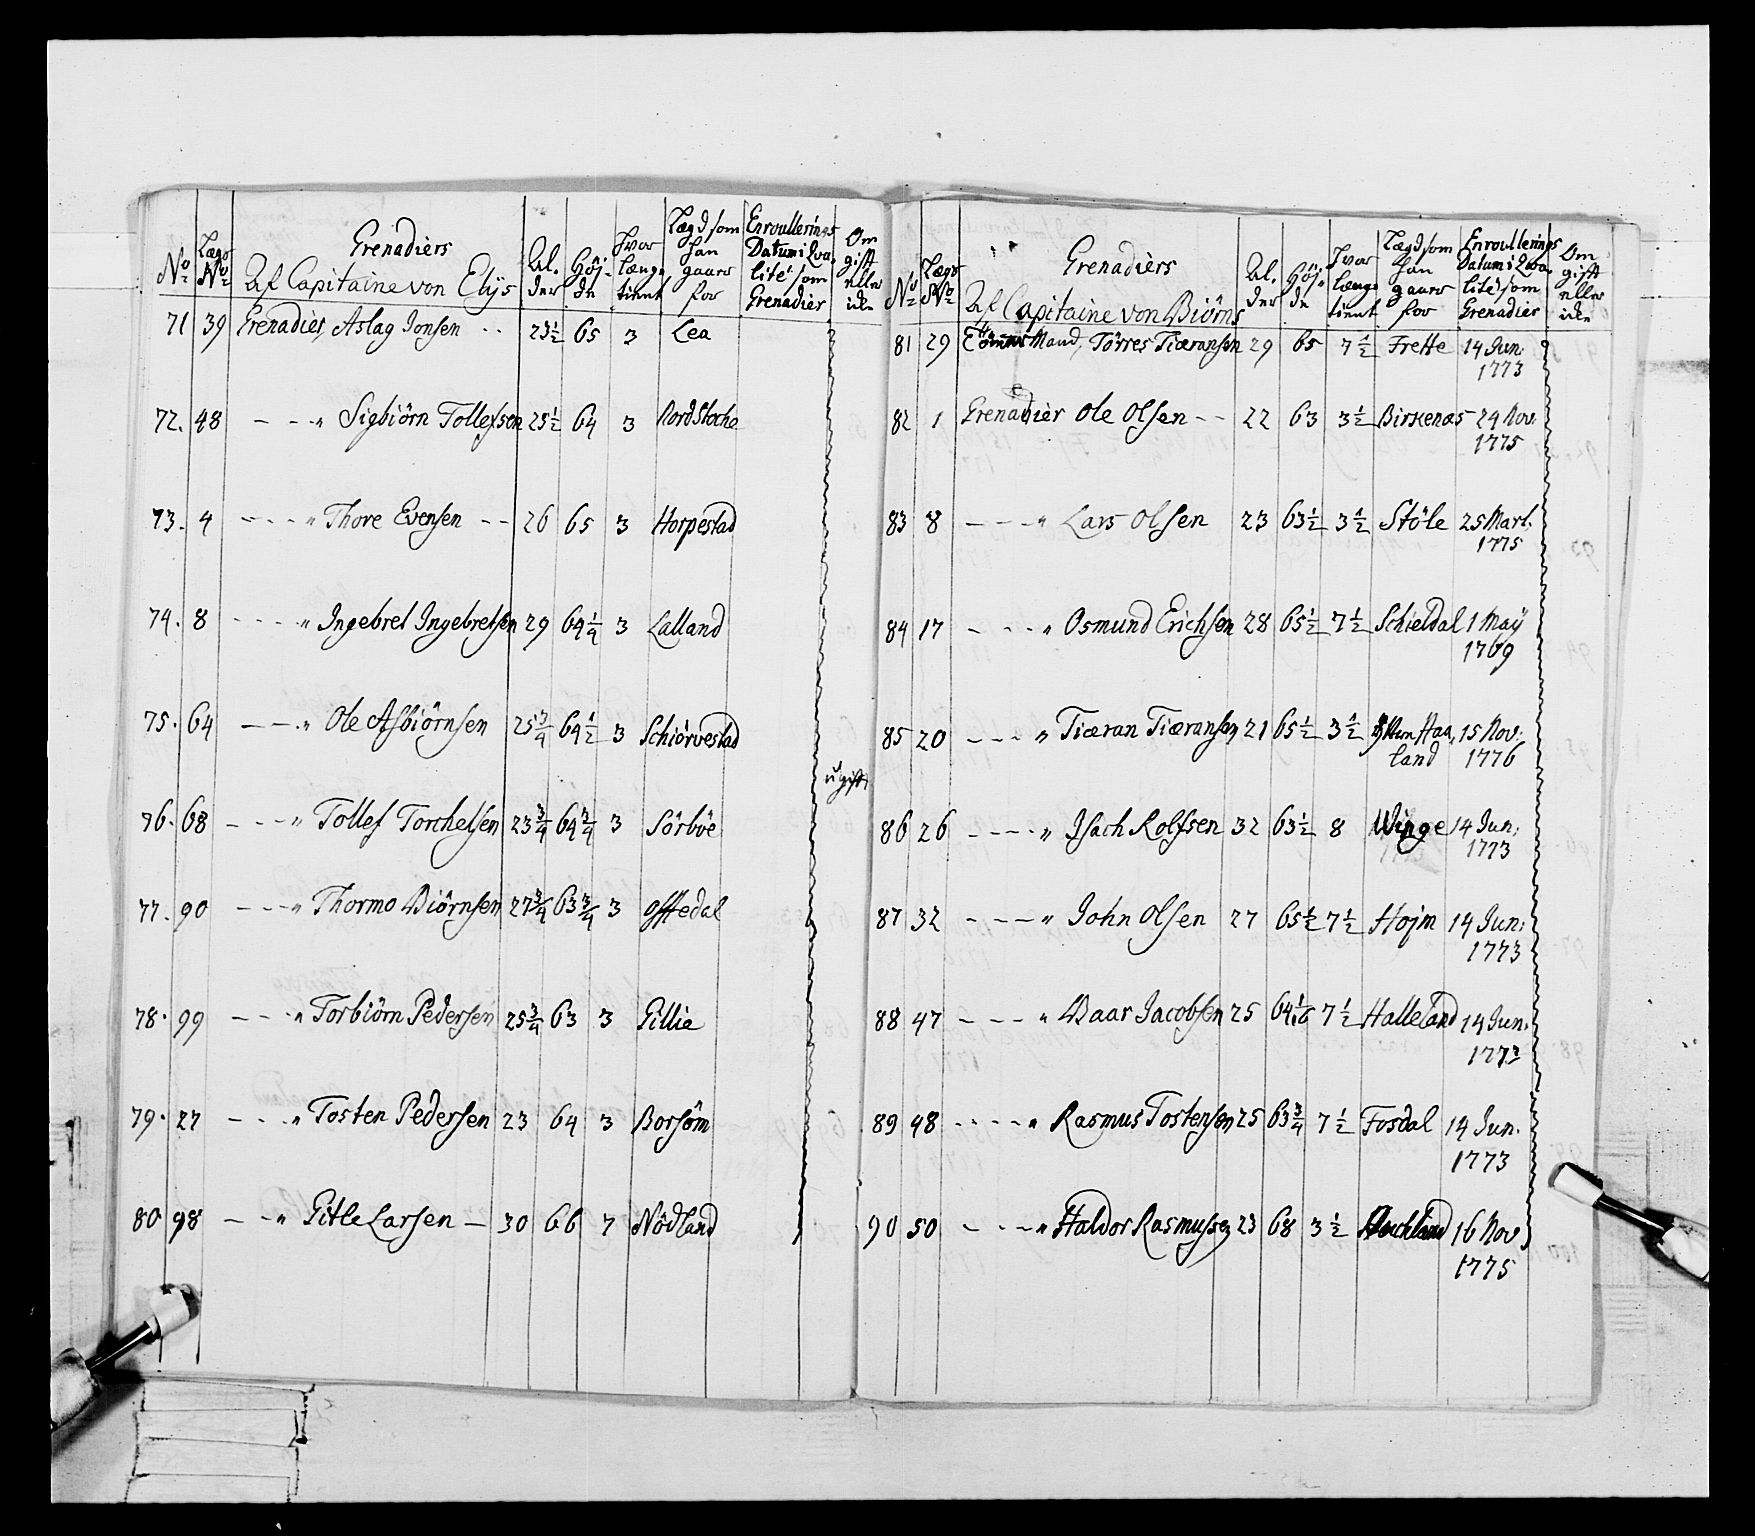 No Lægs No Grenadiers Af Capitaine von Elys Al- der Höj- de Hvor længe tient Lægd som han gaaer for Enroullerings Datum i Qva- lite som Grenadier Om gift eller icke
71 39 Grenadier, Aslag Jonsen - - 23½ 65 3 Lea
72. 48 - - - " Sigbiörn Tollefsen 25½ 64 3 Nordstoche
73. 4 - - - - " Thore Evensen - - 26 65 3 Horpestad
74. 8 - - - - " Ingebret Ingebretsen 29 64¼ 3 Lalland
75. 64 - - - " Ole Asbiörnsen 25¾ 64½ 3 Schiörvestad
ugift
76. 68 - - - " Tollef Torchelsen 23¾ 64¾ 3 Sörböe
77. 90 - - - " Thormo Biörnsen 27¾ 63¾ 3 Ofstedal
78. 99 - - - " Torbiörn Pedersen 25¾ 63 3 Gillie
79. 27 - - - " Tosten Pedersen 23 64 3 Borsöm
80 98 - - - " Gitle Larsen - 30 66 7 Nödland
No Lægs No Grenadiers Af Capitaine von Biörns Al- der Höj- de Hvor længe tient Lægd som han gaaer for Enroullerings Datum i Qva- lite som Grenadier Om gift eller icke
81 29 Tömmer Mand, Törres Tiæransen 29 65 7½ Frette 14 Jun:
1773
82 1 Grenadier Ole Olsen - - 22 63 3½ Birkenæs 24 Nov:
1775
83 8 - - - - " Lars Olsen 23 63½ 3½ Stöle 25 Mart:
1775
84 17 - - - - " Osmund Erichsen 28 65½ 7½ Schieldal 1 May
1769
85 20 - - - - " Tiæran Tiæransen 21 65½ 3½ Haa, 15 Nov:
land 1776
86 26 - - - - " Isach Rolfsen 32 63½ 8 Winge 14 Jun:
1773
87 32 - - - - " John Olsen 27 65½ 7½ Hojm 14 Jun:
1773
88 47 - - - - " Waar Jacobsen 25 64 1/16 7½ Halleland 14 Jun:
1773
89 48 - - - - " Rasmus Tostensen 25 63¾ 7½ Fosdal 14 Jun.
1773
90 50 - - - - " Haldor Rasmussen 23 68 3½ 16 Nov
1775